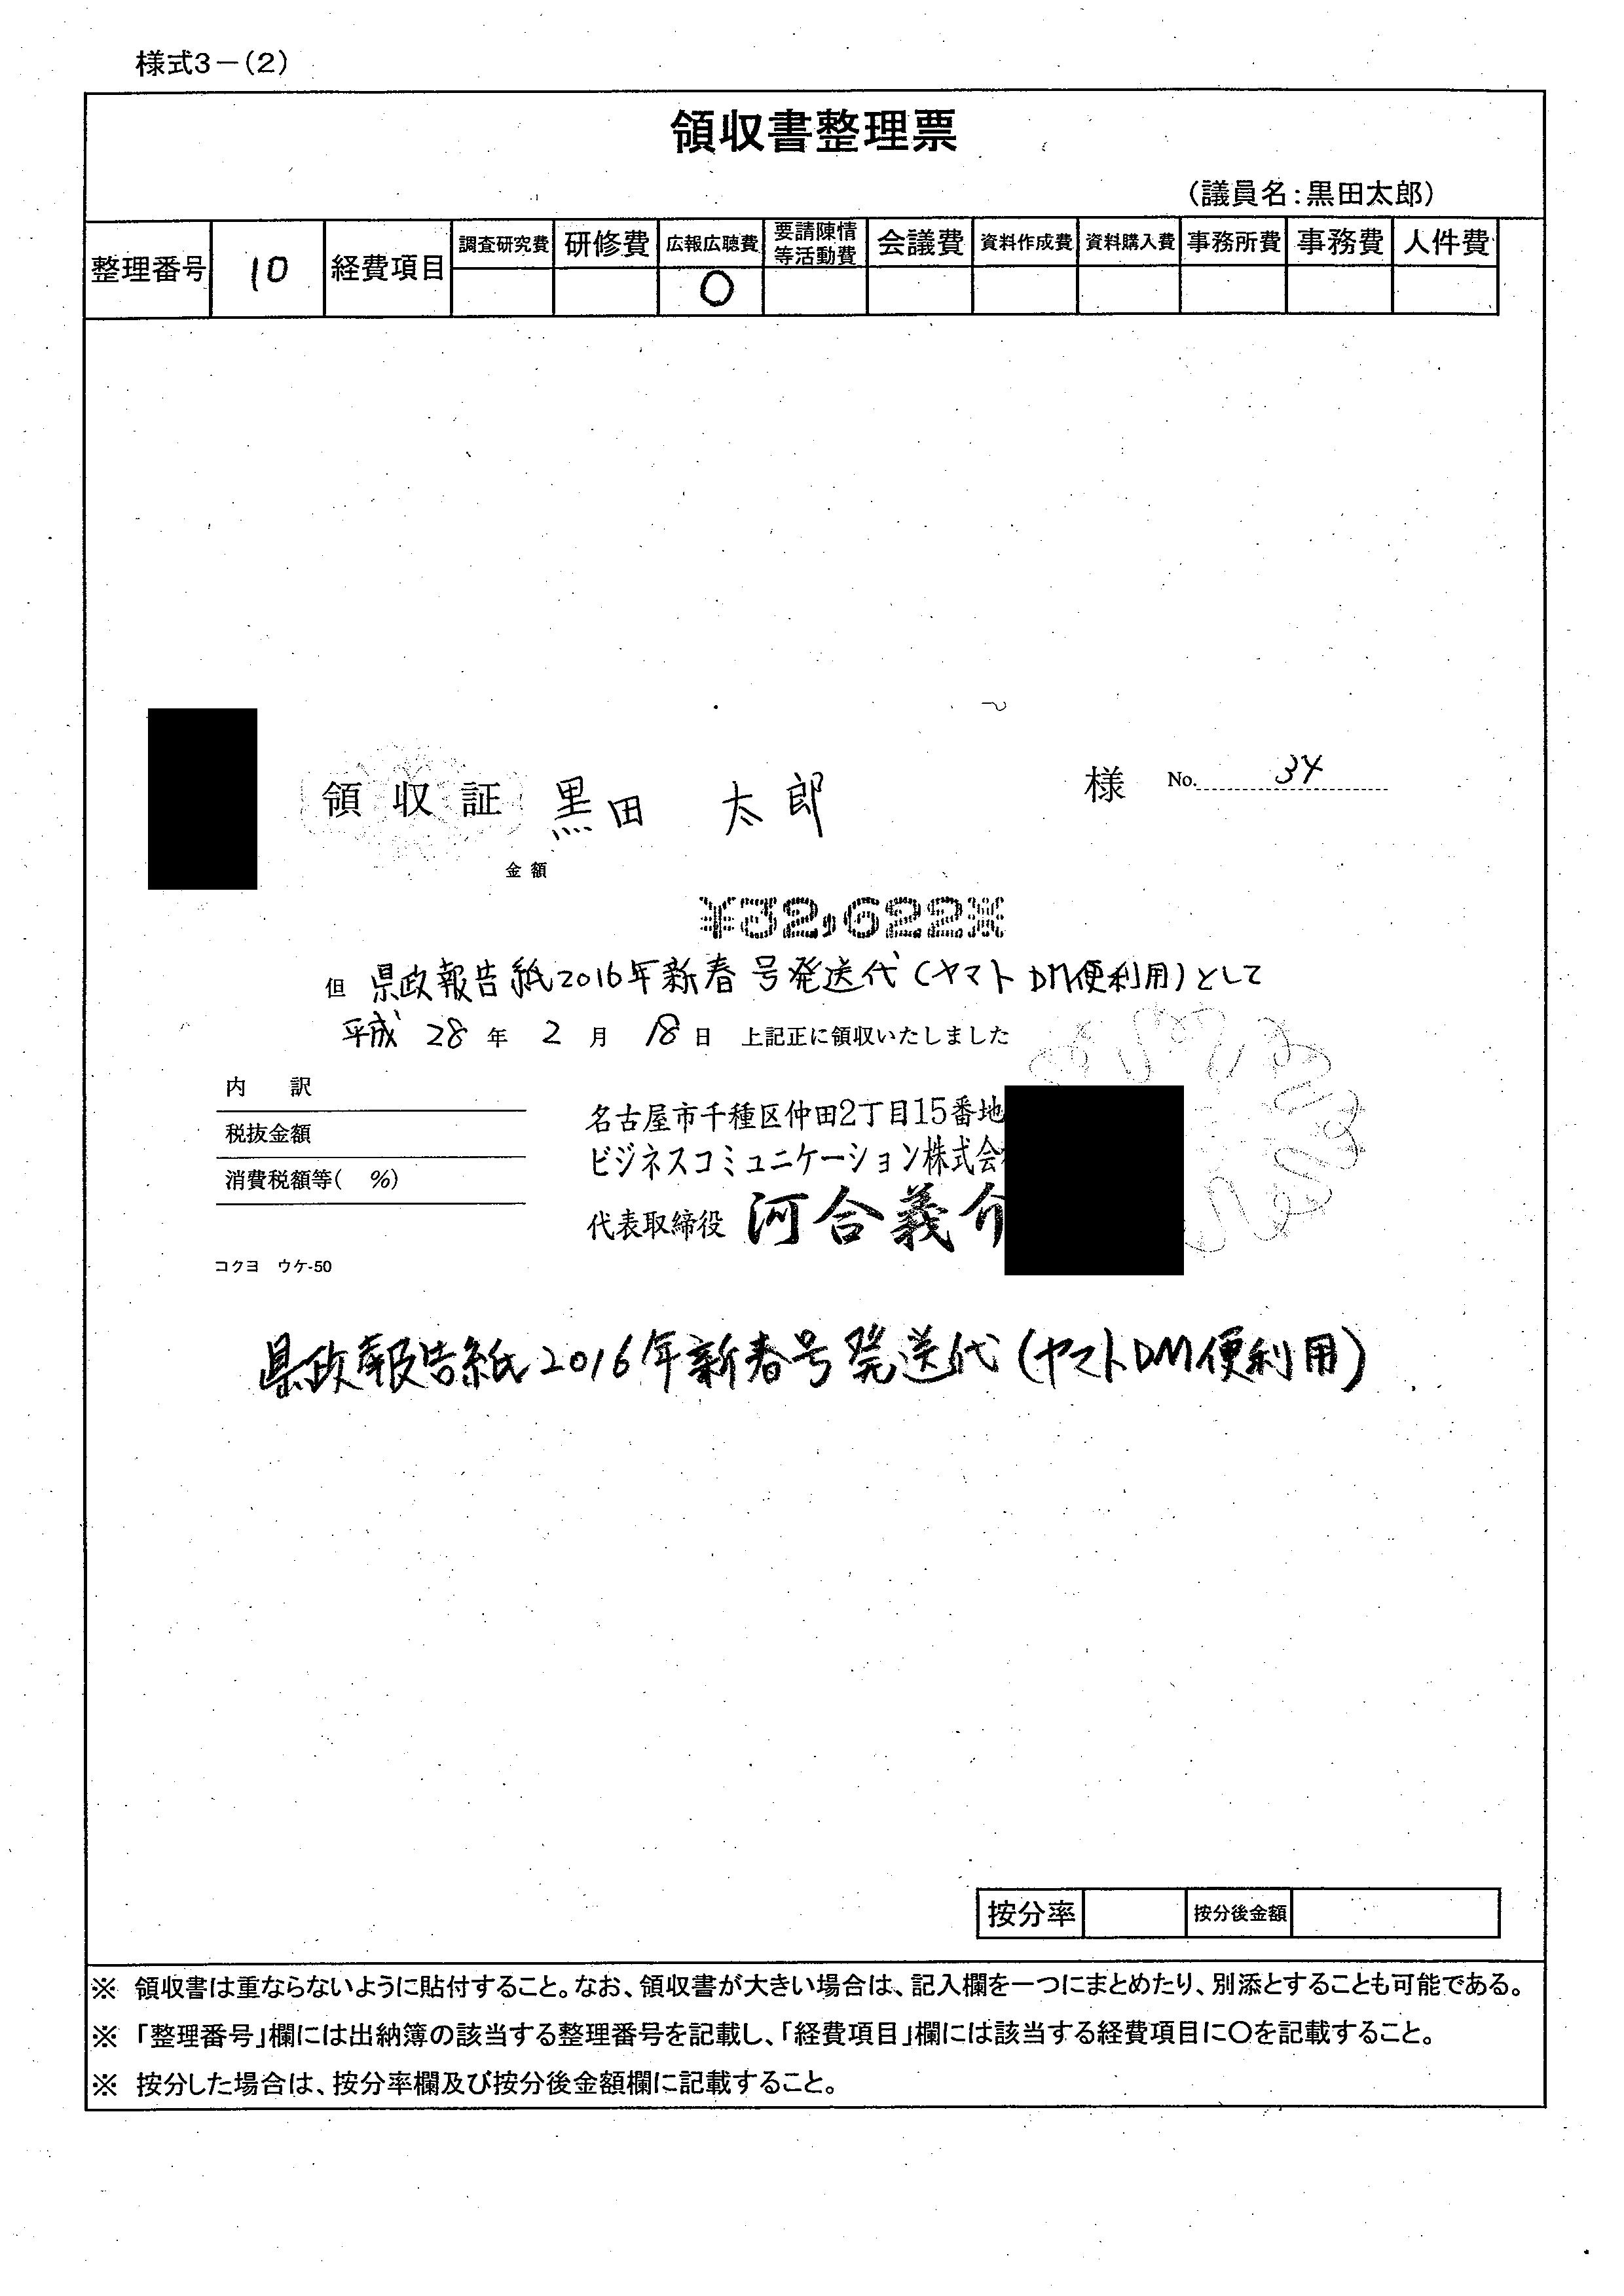 様式3－(2)
領収書整理票
(議員名:黒田太郎)
整理番号 10 経費項目 調査研究費 研修費 広報広聴費 要請陳情等活動費 会議費 資料作成費 資料購入費 事務所費 事務費 人件費
○
領収証 黒田 太郎 様 No. 34
金額
¥32,622※
但 県政報告紙2016年新春号発送代(ヤマトDM便利用)として
平成 28 年 2 月 18 日 上記正に領収いたしました
内 訳
税抜金額
消費税額等( %)
名古屋市千種区仲田2丁目15番地
ビジネスコミュニケーション株式会
代表取締役 河合義介
コクヨ ウケ-50
県政報告紙2016年新春号発送代(ヤマトDM便利用)
按分率 按分後金額
※ 領収書は重ならないように貼付すること。なお、領収書が大きい場合は、記入欄を一つにまとめたり、別添とすることも可能である。
※ 「整理番号」欄には出納簿の該当する整理番号を記載し、「経費項目」欄には該当する経費項目に○を記載すること。
※ 按分した場合は、按分率欄及び按分後金額欄に記載すること。